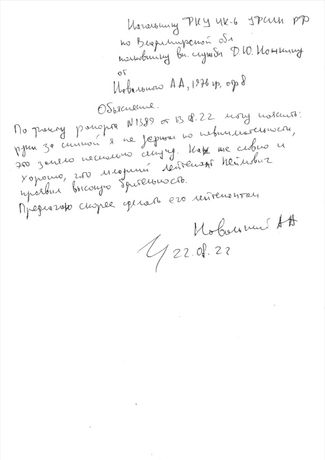 Начальнику ФКУ ИК-6 УФСИН РФ
по Владимирской обл
полковнику вн. службы Д.Ю. Ножкину
от
Навального А.А., 1976 гр, отр 8
Объяснение.
По факту рапорта №1389 от 13.08.22 могу пояснить:
руки за спиной я не держал по невнимательности,
это заняло несколько секунд. Как же славно и
хорошо, что младший лейтенант Неймович
проявил высокую бдительность.
Предлагаю скорее сделать его лейтенантом
Навальный АА
22.08.22